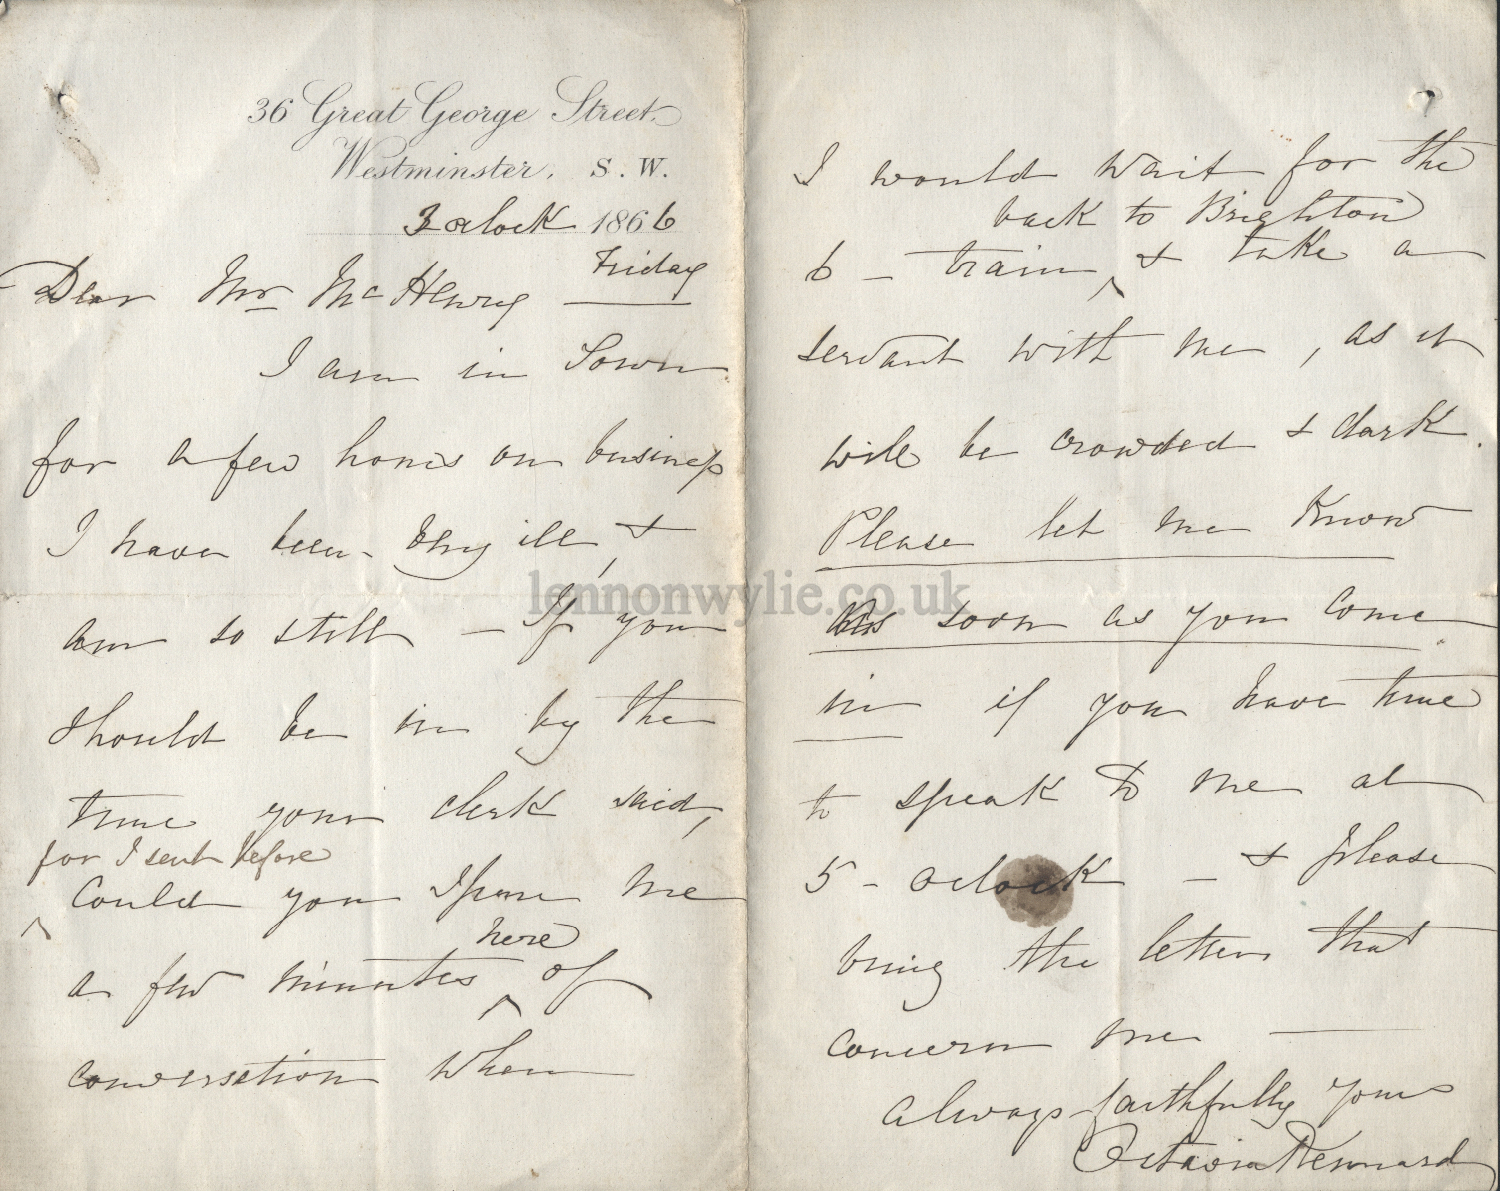 36 Great George Street.
Westminster, S.W.
3 oclock 1866
Friday
Dear Mr McHenry
I am in Town
for a few hours on business
I have been very ill, &
am so still - If you
should be in by the
time your clerk said,
for I sent before
could you spare me
here
a few minutes ^ of
conversation when
I would wait for the
back to Brighton
6 - train ^ & take a
servant with me, as it
will be crowded & dark.
Please let me know
as soon as you come
in if you have time
to speak to me at
5 - oclock - & please
bring the letters that
concern me
always faithfully yours
Octavia Kennard
lennonwylie.co.uk